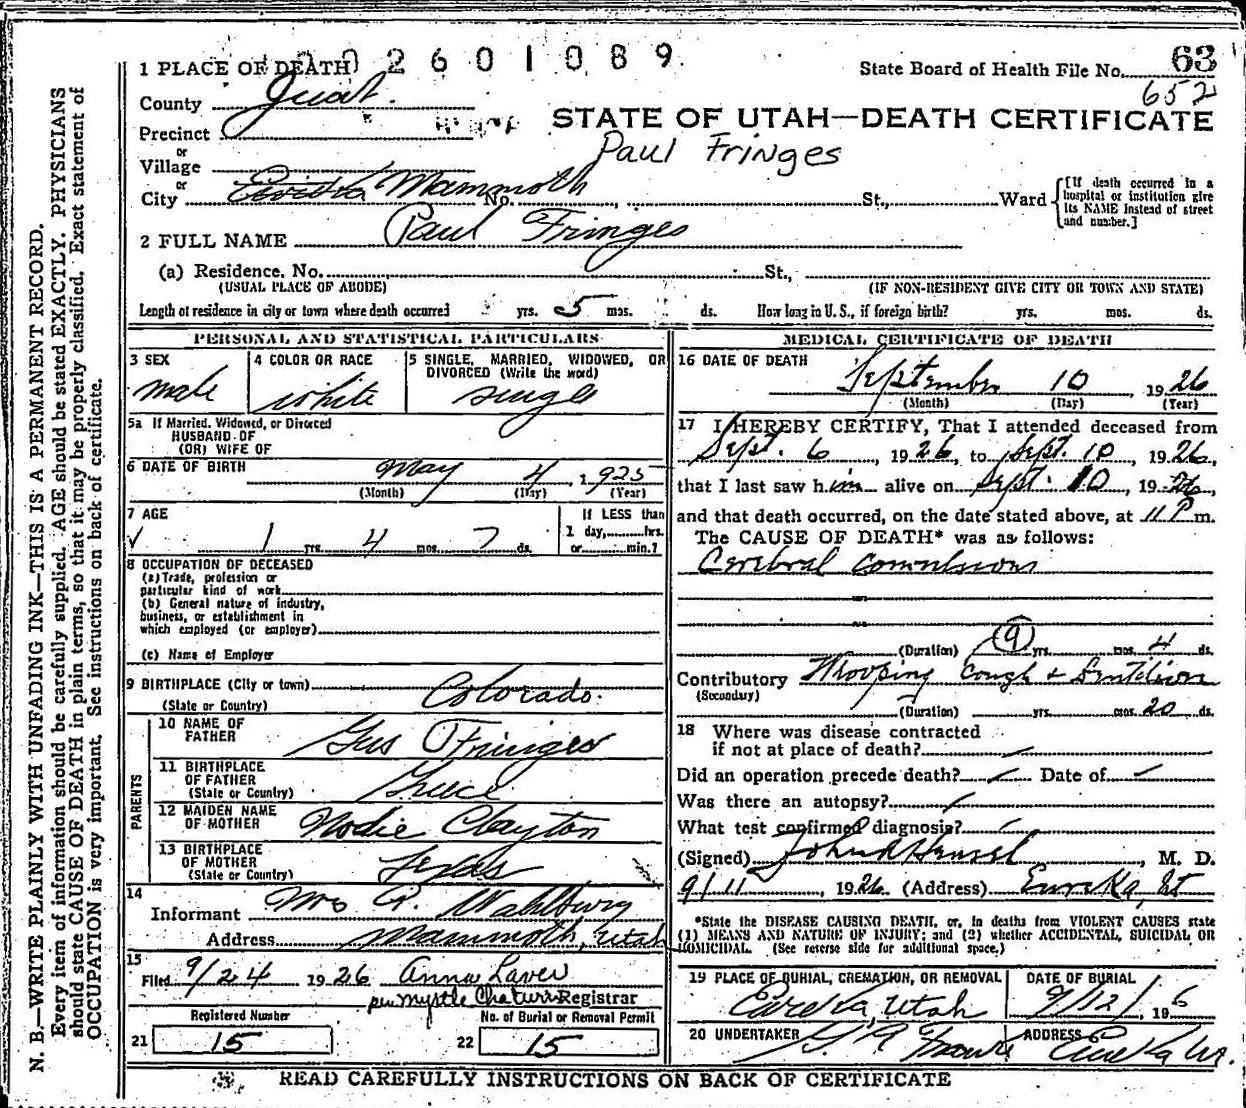 N. B.—WRITE PLAINLY WITH UNFADING INK—THIS IS A PERMANENT RECORD.
Every item of information should be carefully supplied. AGE should be stated EXACTLY. PHYSICIANS
should state CAUSE OF DEATH in plain terms, so that it may be properly classified. Exact statement of
OCCUPATION is very important. See instructions on back of certificate.
2601089
63
1 PLACE OF DEATH
State Board of Health File No.
652
County Juab.
STATE OF UTAH—DEATH CERTIFICATE
Precinct
or
Paul Fringes
Village
or
City Eureka Mammoth No. , St., Ward
[If death occurred in a hospital or institution give its NAME instead of street and number.]
2 FULL NAME Paul Fringes
(a) Residence, No. St.,
(USUAL PLACE OF ABODE) (IF NON-RESIDENT GIVE CITY OR TOWN AND STATE)
Length of residence in city or town where death occurred yrs. 5 mos. ds. How long in U. S., if foreign birth? yrs. mos. ds.
PERSONAL AND STATISTICAL PARTICULARS
3 SEX
male
4 COLOR OR RACE
white
5 SINGLE, MARRIED, WIDOWED, OR
DIVORCED (Write the word)
single
5a If Married, Widowed, or Divorced
HUSBAND OF
(OR) WIFE OF
6 DATE OF BIRTH May 4, 1925
(Month) (Day) (Year)
7 AGE
1 yrs. 4 mos. 7 ds.
If LESS than
1 day, hrs.
or min.?
8 OCCUPATION OF DECEASED
(a) Trade, profession or
particular kind of work
(b) General nature of industry,
business, or establishment in
which employed (or employer)
(c) Name of Employer
9 BIRTHPLACE (City or town)
(State or Country) Colorado.
PARENTS
10 NAME OF
FATHER Gus Fringes
11 BIRTHPLACE
OF FATHER
(State or Country) Greece
12 MAIDEN NAME
OF MOTHER Nodie Clayton
13 BIRTHPLACE
OF MOTHER
(State or Country) Texas
14
Informant Mrs R. Wahlberg
Address Mammoth, Utah
15
Filed 9/24 1926 Anna Laver
per Myrtle Registrar
Registered Number
21 15
No. of Burial or Removal Permit
22 15
MEDICAL CERTIFICATE OF DEATH
16 DATE OF DEATH
September 10, 1926
(Month) (Day) (Year)
17 I HEREBY CERTIFY, That I attended deceased from
Sept. 6, 1926, to Sept. 10, 1926,
that I last saw him alive on Sept. 10, 1926,
and that death occurred, on the date stated above, at 11 P m.
The CAUSE OF DEATH* was as follows:
Cerebral Convulsions
(Duration) (9) yrs. mos. 4 ds.
Contributory Whooping Cough + Dentition
(Secondary)
(Duration) yrs. mos. 20 ds.
18 Where was disease contracted
if not at place of death?
Did an operation precede death? Date of
Was there an autopsy?
What test confirmed diagnosis?
(Signed) John R Hensel, M. D.
9/11, 1926 (Address) Eureka, Ut
*State the DISEASE CAUSING DEATH, or, in deaths from VIOLENT CAUSES state
(1) MEANS AND NATURE OF INJURY; and (2) whether ACCIDENTAL, SUICIDAL OR
HOMICIDAL. (See reverse side for additional space.)
19 PLACE OF BURIAL, CREMATION, OR REMOVAL
Eureka, Utah
DATE OF BURIAL
9/12/, 196
20 UNDERTAKER
ADDRESS
Eureka Ut.
READ CAREFULLY INSTRUCTIONS ON BACK OF CERTIFICATE